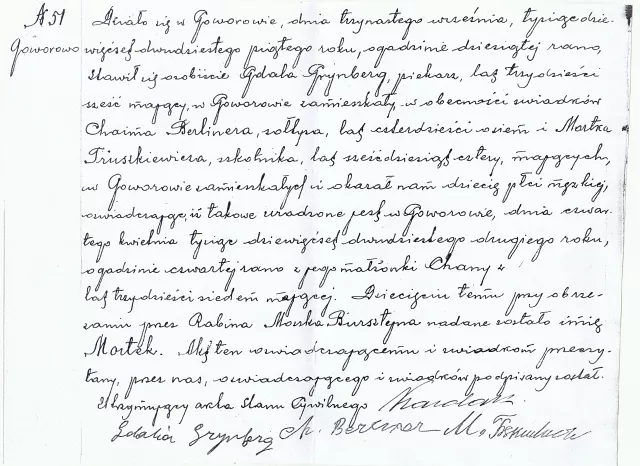 № 51
Goworowo
Działo się w Goworowie, dnia trzynastego września, tysiąc dzie-
więćset dwudziestego piątego roku, o godzinie dziesiątej rano,
stawił się osobiście Gdala Grynberg, piekarz, lat trzydzieści
sześć mający, w Goworowie zamieszkały w obecności świadków
Chaima Berlinera, sołtysa, lat czterdzieści osiem i Mortka
Truszkiewicza, szkolnika, lat sześćdziesiąt cztery, mających,
w Goworowie zamieszkałych i okazał nam dziecię płci męzkiej,
oświadczając, iż takowe urodzone jest w Goworowie, dnia czwar-
tego kwietnia tysiąc dziewięćset dwudziestego drugiego roku,
o godzinie czwartej rano z jego małżonki Chany z
lat trzydzieści siedem mającej. Dziecięciu temu przy obrze-
zaniu przez Rabina Moszka Bursztyna nadane zostało imię
Mortek. Akt ten oświadczającemu i świadkom przeczy-
tany, przez nas, oświadczającego i świadków podpisany został.
Utrzymujący akta Stanu Cywilnego
Gdalia Grynberg Ch. Berliner M.